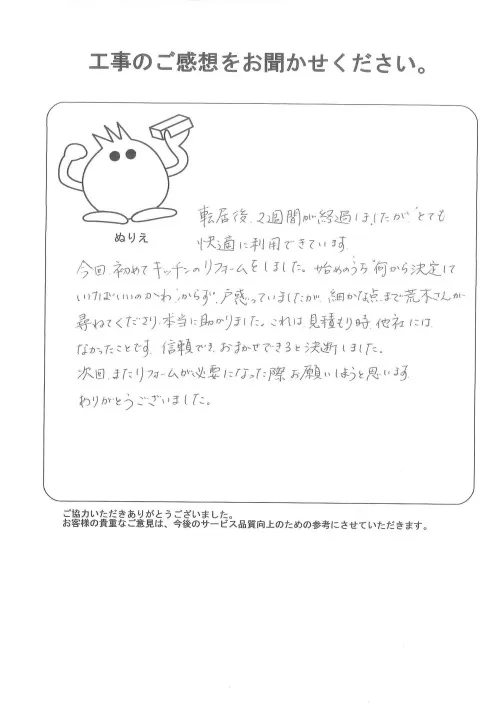 工事のご感想をお聞かせください。
ぬりえ
転居後、2週間が経過しましたが、とても
快適に利用できています。
今回、初めてキッチンのリフォームをしました。始めのうち、何から決定して
いけばいいのかわからず、戸惑っていましたが、細かな点まで荒木さんが
尋ねてくださり、本当に助かりました。これは、見積もり時、他社には
なかったことです。信頼でき、おまかせできると決断しました。
次回、またリフォームが必要になった際、お願いしようと思います。
ありがとうございました。
ご協力いただきありがとうございました。
お客様の貴重なご意見は、今後のサービス品質向上のための参考にさせていただきます。